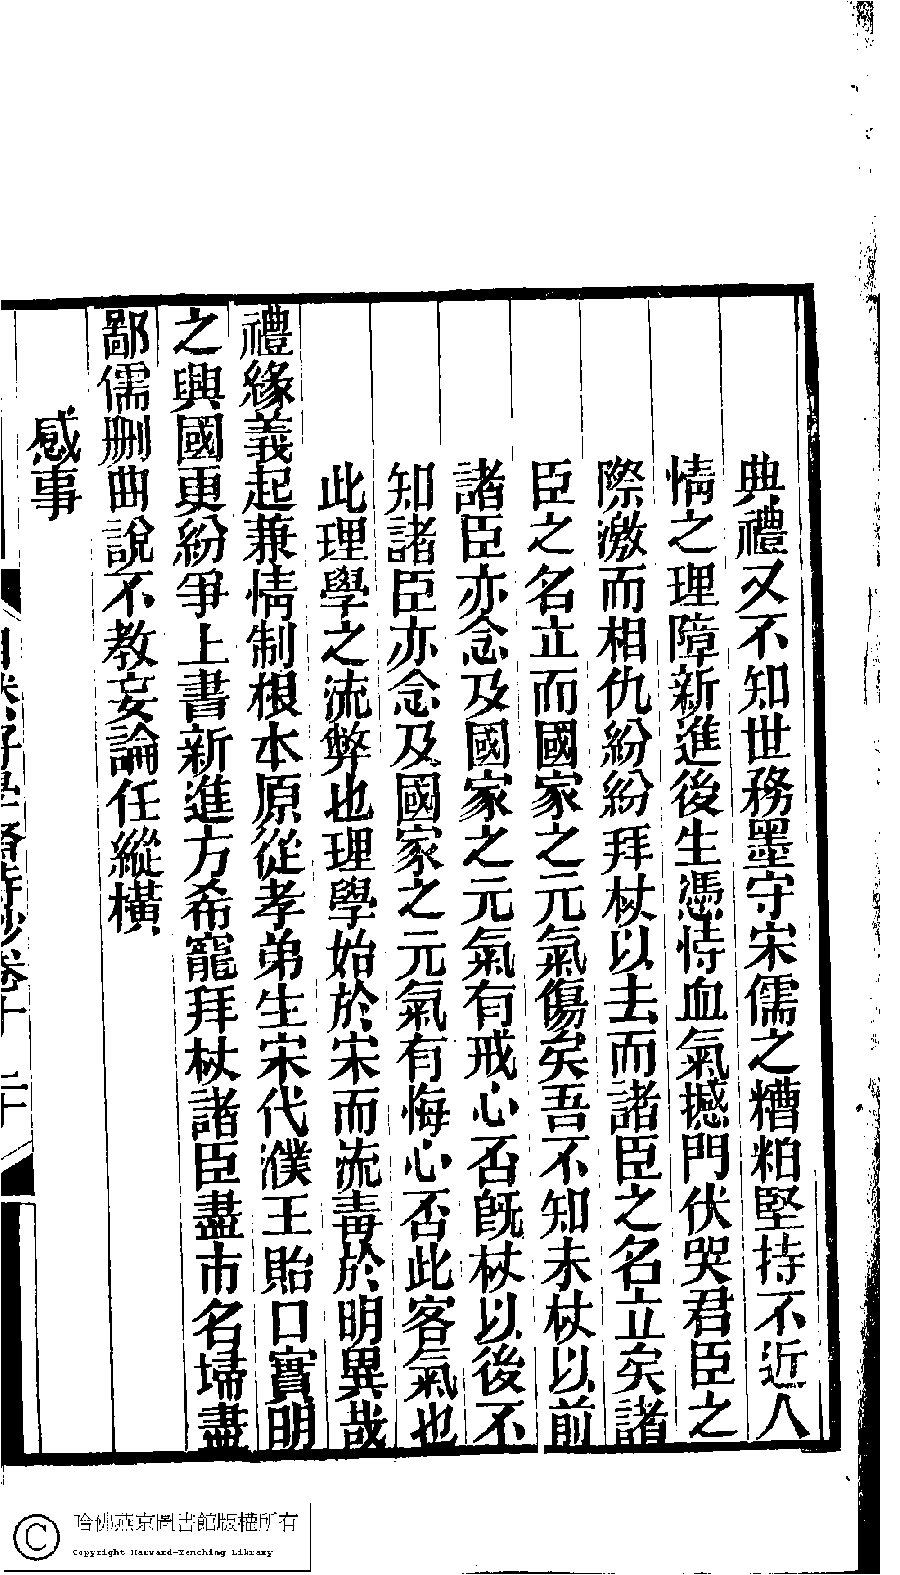 典禮又不知世務墨守宋儒之糟粕堅持不近人
情之理障新進後生憑恃血氣撼門伏哭君臣之
際激而相仇紛紛拜杖以去而諸臣之名立矣諸
臣之名立而國家之元氣傷矣吾不知未杖以前
諸臣亦念及國家之元氣有戒心否旣杖以後不
知諸臣亦念及國家之元氣有悔心否此客氣也
此理學之流弊也理學始於宋而流毒於明異哉
禮緣義起兼情制根本原從孝弟生宋代濮王貽口實明
之興國更紛爭上書新進方希寵拜杖諸臣盡市名埽盡
鄙儒刪曲說不教妄論任縱橫
感事
好學齋詩鈔卷十 二十
哈佛燕京圖書館版權所有
Copyright Harvard-Yenching Library